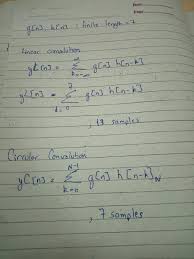 g[n], h[n] : finite length = 7
Linear convolution
yL[n] = ∞ Σ k=-∞ g[n] h[n-k]
yL[n] = 7 Σ k=0 g[n] h[n-k]
, 13 samples
Circular Convolution
yC[n] = N-1 Σ k=0 g[n] h[n-k]N
, 7 samples